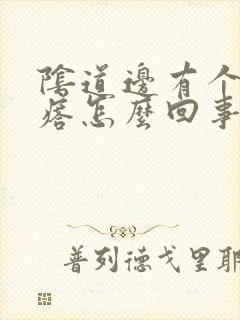 陰道邊有个
痞怎麼回事
普列德戈里耶